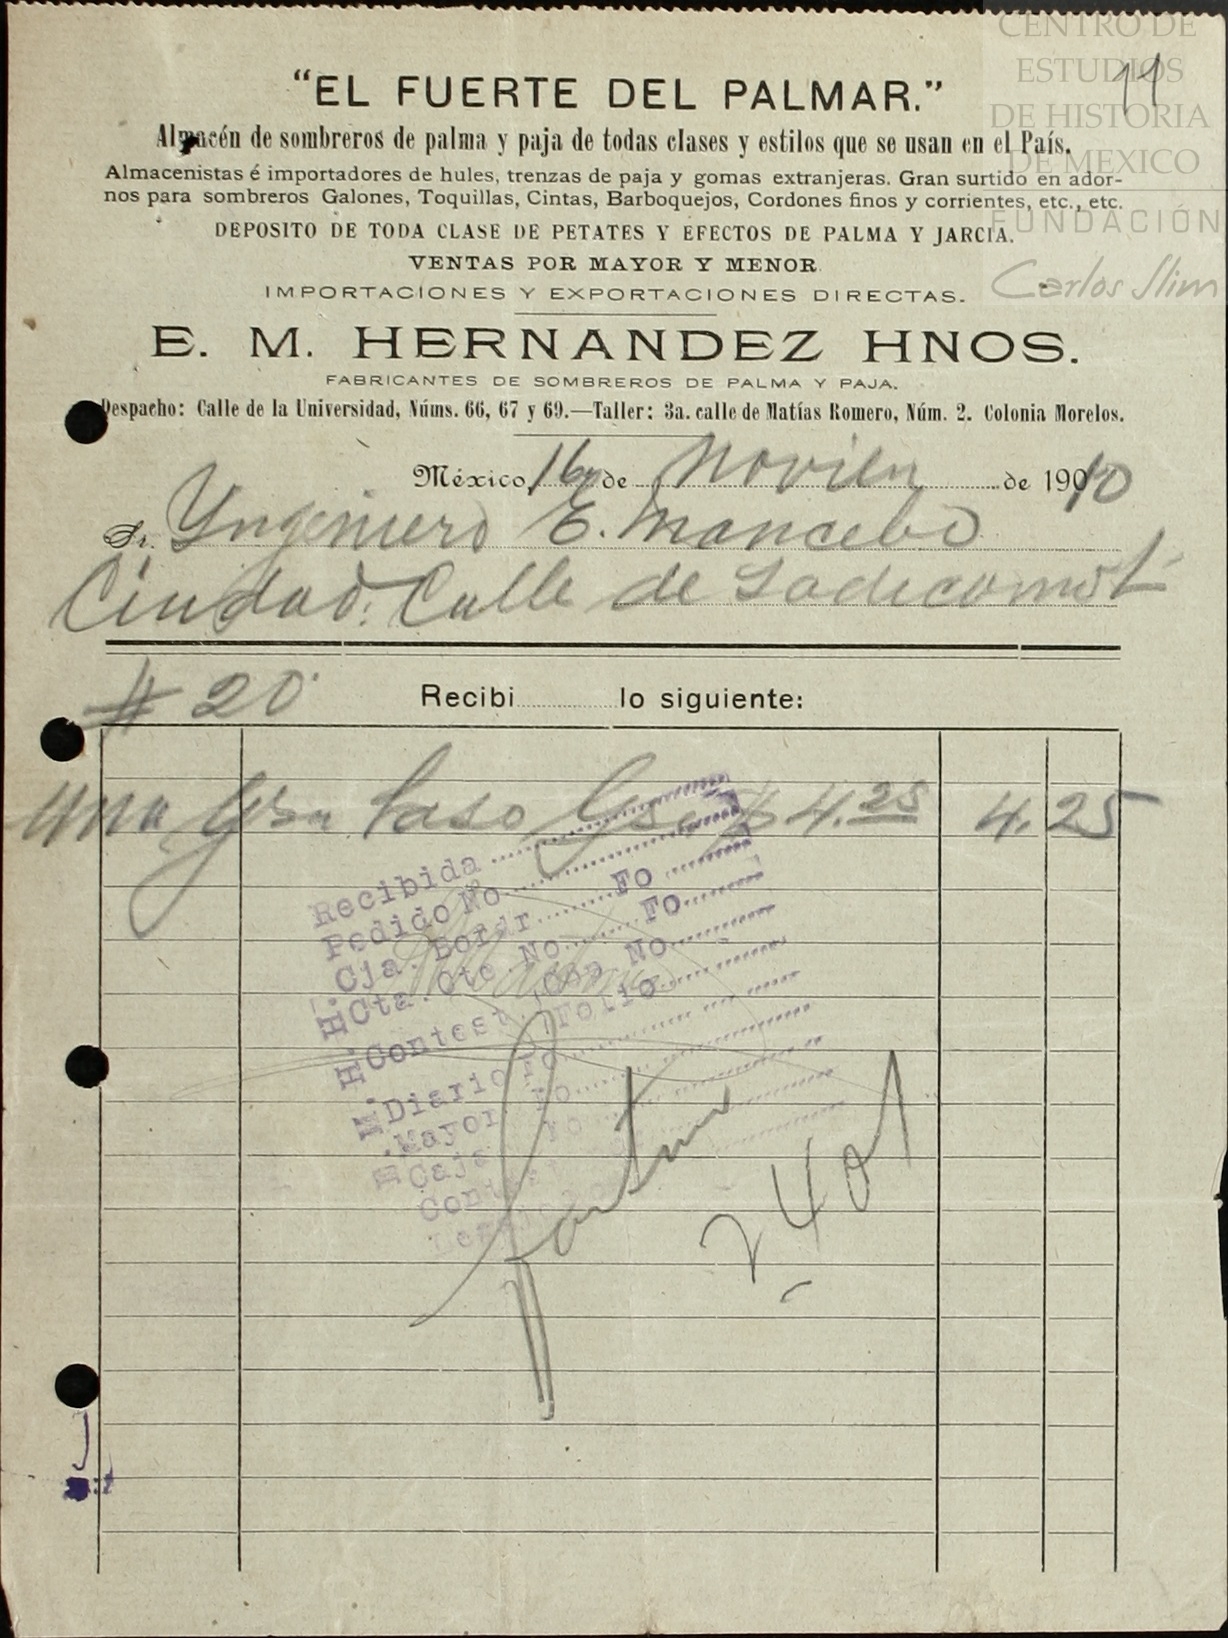 CENTRO DE
ESTUDIOS
DE HISTORIA
DE MEXICO
FUNDACIÓN
Carlos Slim
11
"EL FUERTE DEL PALMAR."
Almacén de sombreros de palma y paja de todas clases y estilos que se usan en el País.
Almacenistas é importadores de hules, trenzas de paja y gomas extranjeras. Gran surtido en ador-
nos para sombreros Galones, Toquillas, Cintas, Barboquejos, Cordones finos y corrientes, etc., etc.
DEPOSITO DE TODA CLASE DE PETATES Y EFECTOS DE PALMA Y JARCIA.
VENTAS POR MAYOR Y MENOR
IMPORTACIONES Y EXPORTACIONES DIRECTAS.
E. M. HERNANDEZ HNOS.
FABRICANTES DE SOMBREROS DE PALMA Y PAJA.
Despacho: Calle de la Universidad, Núms. 66, 67 y 69.—Taller: 3a. calle de Matías Romero, Núm. 2. Colonia Morelos.
México, 16 de Novien de 1910
Sr. Yngeniero E. Mancebo
Ciudad. Calle de
# 20
Recibi lo siguiente:
Una $ 4.25 4.25
Recibida
Pedido No
Cja. Bordr Fo
Cta. Cte. No Fo
Contest. Cpa No
Folio
Diario Fo
Mayor Fo
Caja Fo
2401